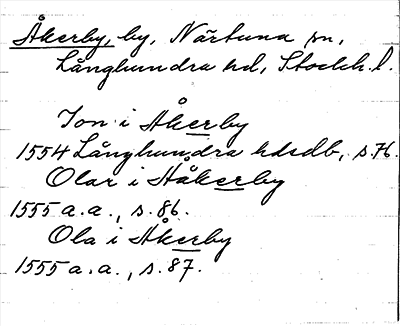 Åkerby, by, Närtuna sn,
Långhundra hd, Stockh. l.
Jon i Åkerby
1554 Långhundra hdsdb, s. 76.
Olar i Håkerby
1555 a.a., s. 86.
Ola i Åkerby
1555 a.a., s. 87.